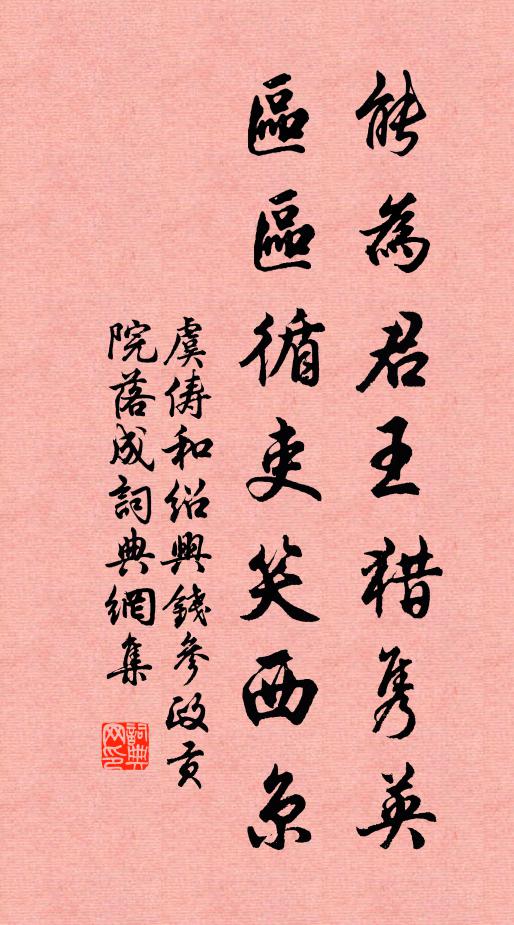 能為君王猎隽英
區區循吏笑西京
虞儔和紹興錢參政貢
院落成詞典網集
詞典网印